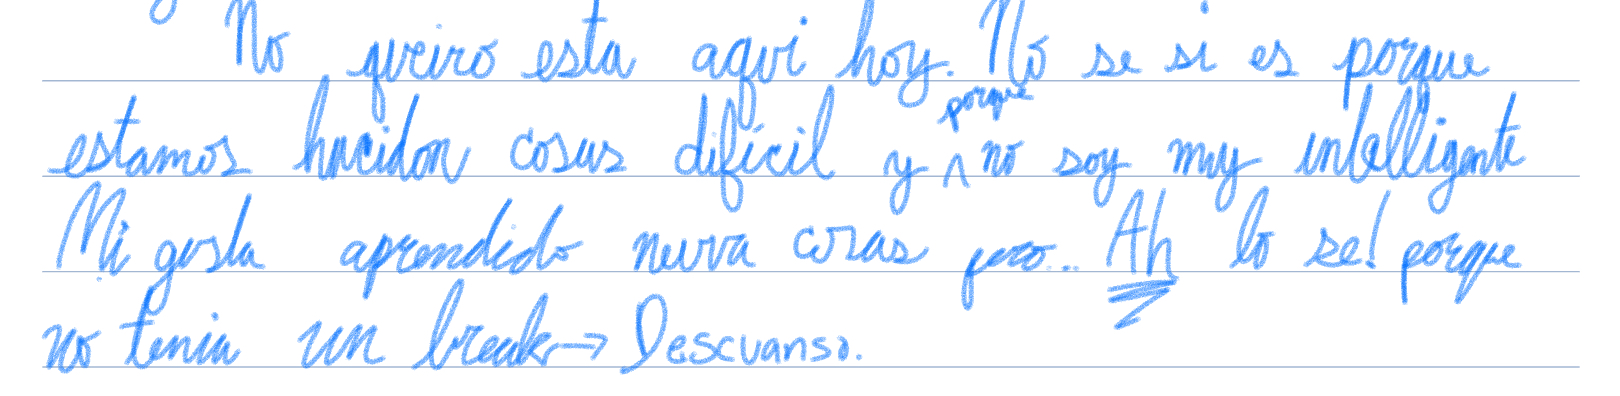 No queiro esta aqui hoy. No se si es porque
estamos hacidon cosas difícil y porque no soy muy intelligente
Mi gusta aprendido neuva cosas pero... Ah lo se! porque
no tenia un break → Descuanso.